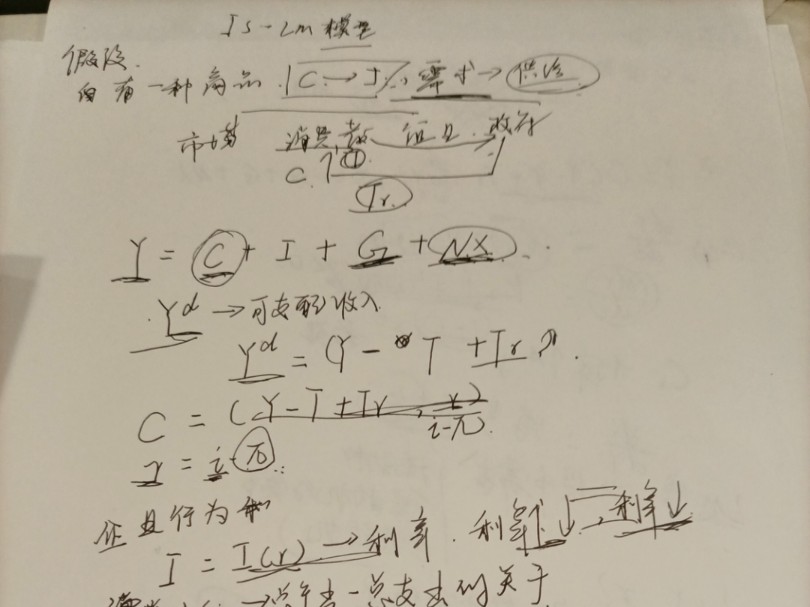 IS-LM 模型
假设.
只有一种商品. C → I 需求 → 供给
市场 消费者 企业 政府
C. ↑ ①
Tr
Y = C + I + G + NX
Yd → 可支配收入
Yd = Y - T + Tr
C = (Y-T+Tr, r)
i-π
r = i-π
企业行为
I = I(r) → 利率. 利率 ↓ 利率↓
→ 总支出的关于